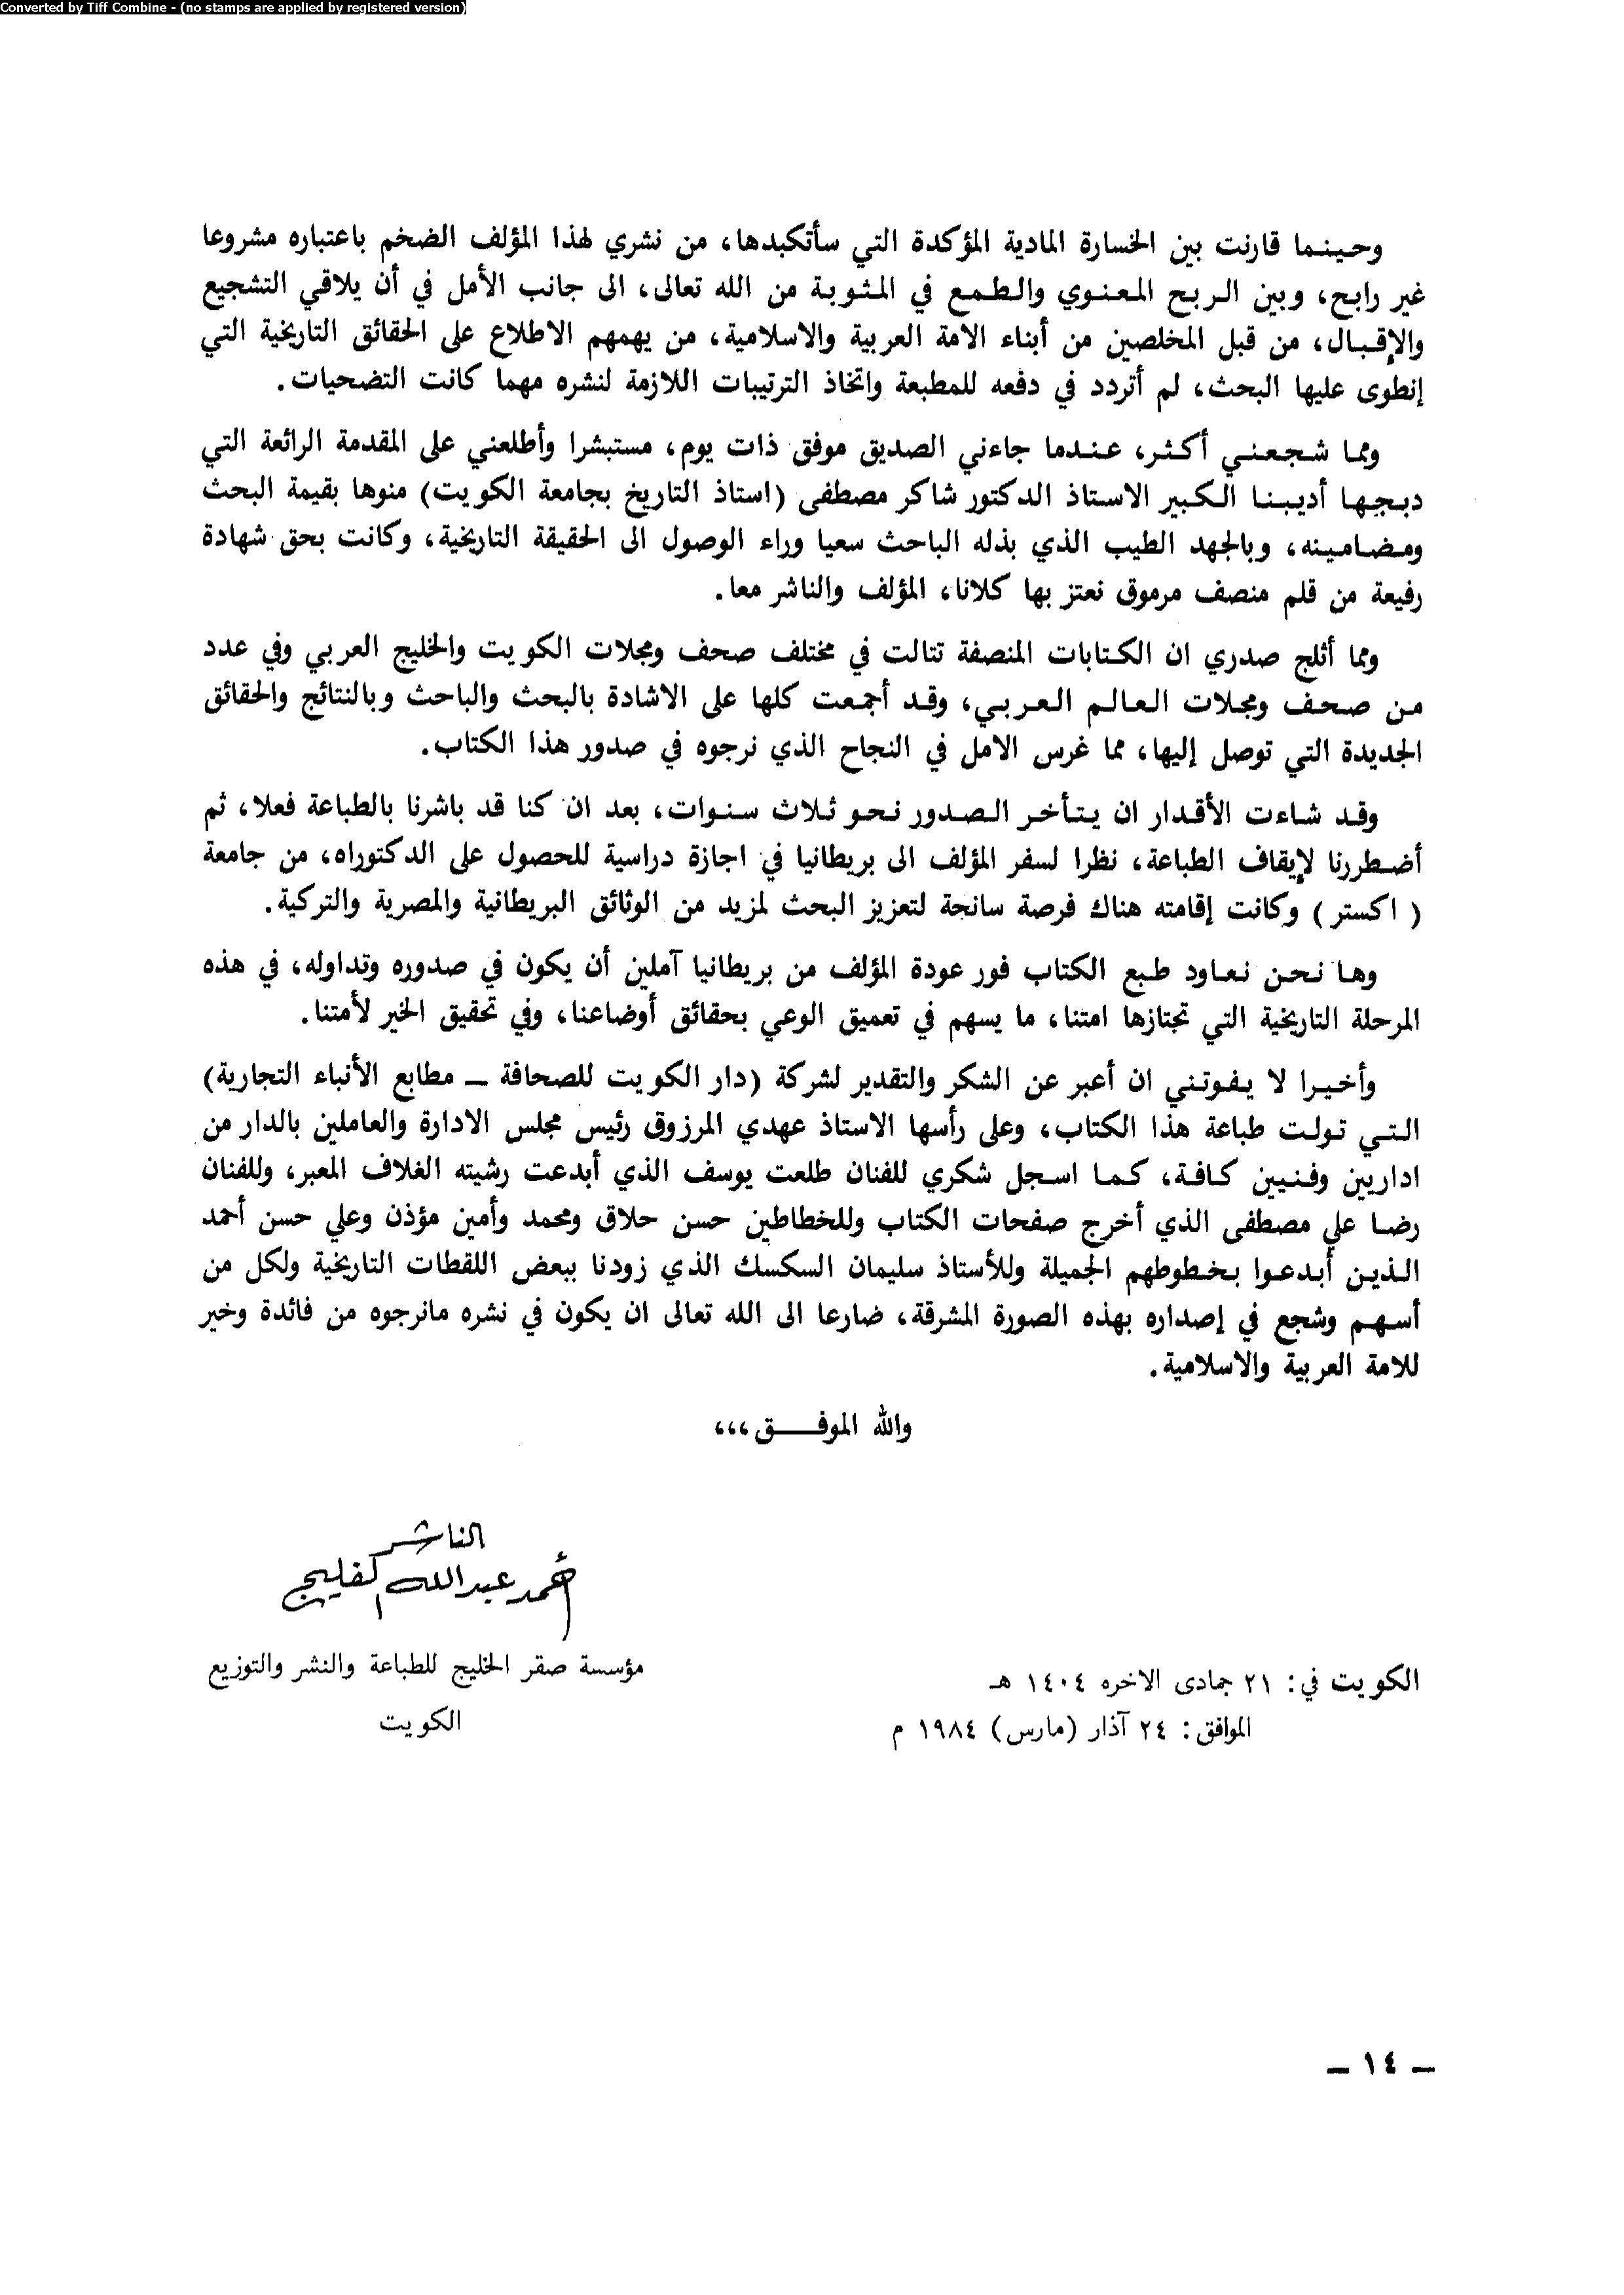 Converted by Tiff Combine - (no stamps are applied by registered version)
وحينما قارنت بين الخسارة المادية المؤكدة التي سأتكبدها، من نشري لهذا المؤلف الضخم باعتباره مشروعا
غير رابح، وبين الربح المعنوي والطمع في المثوبة من الله تعالى، الى جانب الأمل في أن يلاقي التشجيع
والإقبال، من قبل المخلصين من أبناء الامة العربية والاسلامية، من يهمهم الاطلاع على الحقائق التاريخية التي
إنطوى عليها البحث، لم أتردد في دفعه للمطبعة واتخاذ الترتيبات اللازمة لنشره مهما كانت التضحيات.
ومما شجعني أكثر، عندما جاءني الصديق موفق ذات يوم، مستبشرا وأطلعني على المقدمة الرائعة التي
دبجها أديبنا الكبير الاستاذ الدكتور شاكر مصطفى (استاذ التاريخ بجامعة الكويت) منوها بقيمة البحث
ومضامينه، وبالجهد الطيب الذي بذله الباحث سعيا وراء الوصول الى الحقيقة التاريخية، وكانت بحق شهادة
رفيعة من قلم منصف مرموق نعتز بها كلانا، المؤلف والناشر معا.
ومما أثلج صدري ان الكتابات المنصفة تتالت في مختلف صحف ومجلات الكويت والخليج العربي وفي عدد
من صحف ومجلات العالم العربي، وقد أجمعت كلها على الاشادة بالبحث والباحث وبالنتائج والحقائق
الجديدة التي توصل إليها، مما غرس الامل في النجاح الذي نرجوه في صدور هذا الكتاب.
وقد شاءت الأقدار ان يتأخر الصدور نحو ثلاث سنوات، بعد ان كنا قد باشرنا بالطباعة فعلا، ثم
أضطررنا لإيقاف الطباعة، نظرا لسفر المؤلف الى بريطانيا في اجازة دراسية للحصول على الدكتوراه، من جامعة
( اكستر ) وكانت إقامته هناك فرصة سانحة لتعزيز البحث لمزيد من الوثائق البريطانية والمصرية والتركية.
وها نحن نعاود طبع الكتاب فور عودة المؤلف من بريطانيا آملين أن يكون في صدوره وتداوله، في هذه
المرحلة التاريخية التي تجتازها امتنا، ما يسهم في تعميق الوعي بحقائق أوضاعنا، وفي تحقيق الخير لأمتنا.
وأخيرا لا يفوتني ان أعبر عن الشكر والتقدير لشركة (دار الكويت للصحافة ــ مطابع الأنباء التجارية)
التي تولت طباعة هذا الكتاب، وعلى رأسها الاستاذ عهدي المرزوق رئيس مجلس الادارة والعاملين بالدار من
اداريين وفنيين كافة، كما اسجل شكري للفنان طلعت يوسف الذي أبدعت رشيته الغلاف المعبر، وللفنان
رضا علي مصطفى الذي أخرج صفحات الكتاب وللخطاطين حسن حلاق ومحمد وأمين مؤذن وعلي حسن أحمد
الذين أبدعوا بخطوطهم الجميلة وللأستاذ سليمان السكسك الذي زودنا ببعض اللقطات التاريخية ولكل من
أسهم وشجع في إصداره بهذه الصورة المشرقة، ضارعا الى الله تعالى ان يكون في نشره مانرجوه من فائدة وخير
للامة العربية والاسلامية.
والله الموفــــــق،،،
الناشر
أحمد عبدالله الفليج
مؤسسة صقر الخليج للطباعة والنشر والتوزيع
الكويت
الكويت في: ٢١ جمادى الاخره ١٤٠٤ هـ
الموافق: ٢٤ آذار (مارس) ١٩٨٤ م
ــ ١٤ ــ